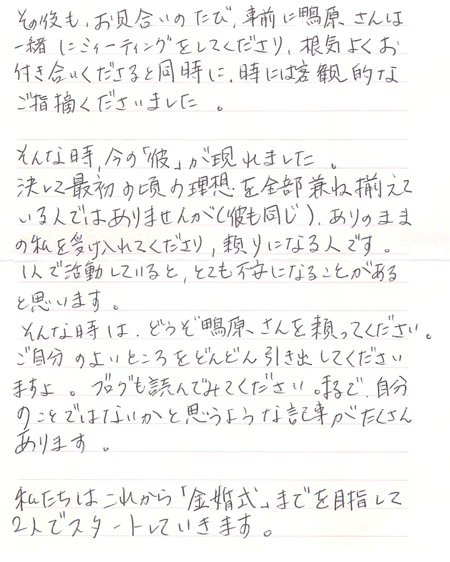 その後も、お見合いのたび、事前に鴨原さんは
一緒にミーティングをしてくださり、根気よくお
付き合いくださると同時に、時には客観的な
ご指摘くださいました。
そんな時、今の「彼」が現れました。
決して最初の頃の理想を全部兼ね揃えて
いる人ではありませんが(彼も同じ)、ありのまま
の私を受け入れてくださり、頼りになる人です。
1人で活動していると、とても不安になることがある
と思います。
そんな時は、どうぞ鴨原さんを頼ってください。
ご自分のよいところをどんどん引き出してください
ますよ。ブログも読んでみてください。まるで、自分
のことではないかと思うような記事がたくさん
あります。
私たちはこれから「金婚式」までを目指して
2人でスタートしていきます。